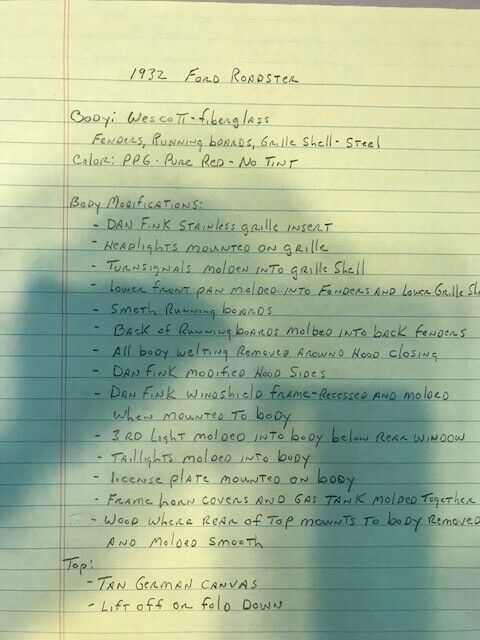 1932 Ford Roadster
Body: Wescott-fiberglass
Fenders, Running boards, Grille Shell-Steel
Color: PPG-Pure Red-No Tint
Body Modifications:
- Dan Fink Stainless grille insert
- Headlights mounted on grille
- Turnsignals molded into grille shell
- Lower front pan molded into Fenders and Lower Grille Sh
- Smoth Running boards
- Back of Running boards molded into back fenders
- All body welting Removed Around Hood closing
- Dan Fink modified Hood Sides
- Dan Fink Windshield frame-Recessed and molded
when mounted to body
- 3RD Light molded into body below Rear window
- Taillights molded into body
- License plate mounted on body
- Frame horn covers and gas tank molded together
- Wood where Rear of Top mounts to body Removed
and molded smooth
Top:
- Tan German Canvas
- Lift off or fold down